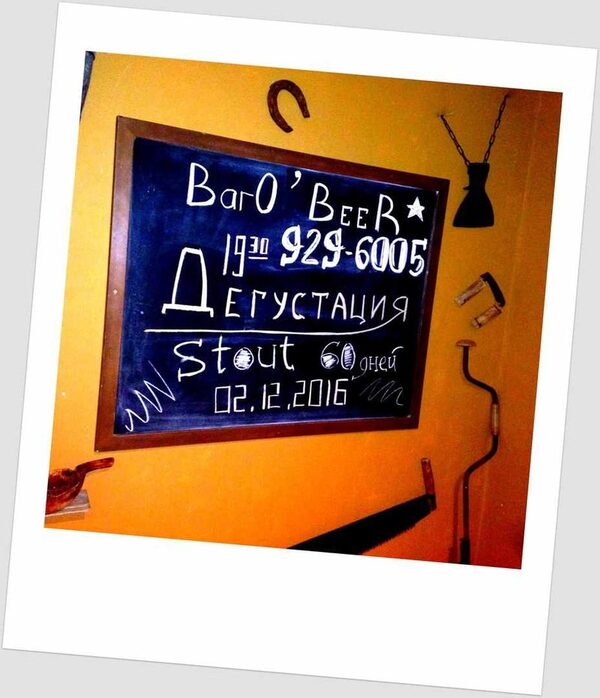 BarO'BeeR
19³⁰ 929-6005
Дегустация
Stout 60 дней
02.12.2016